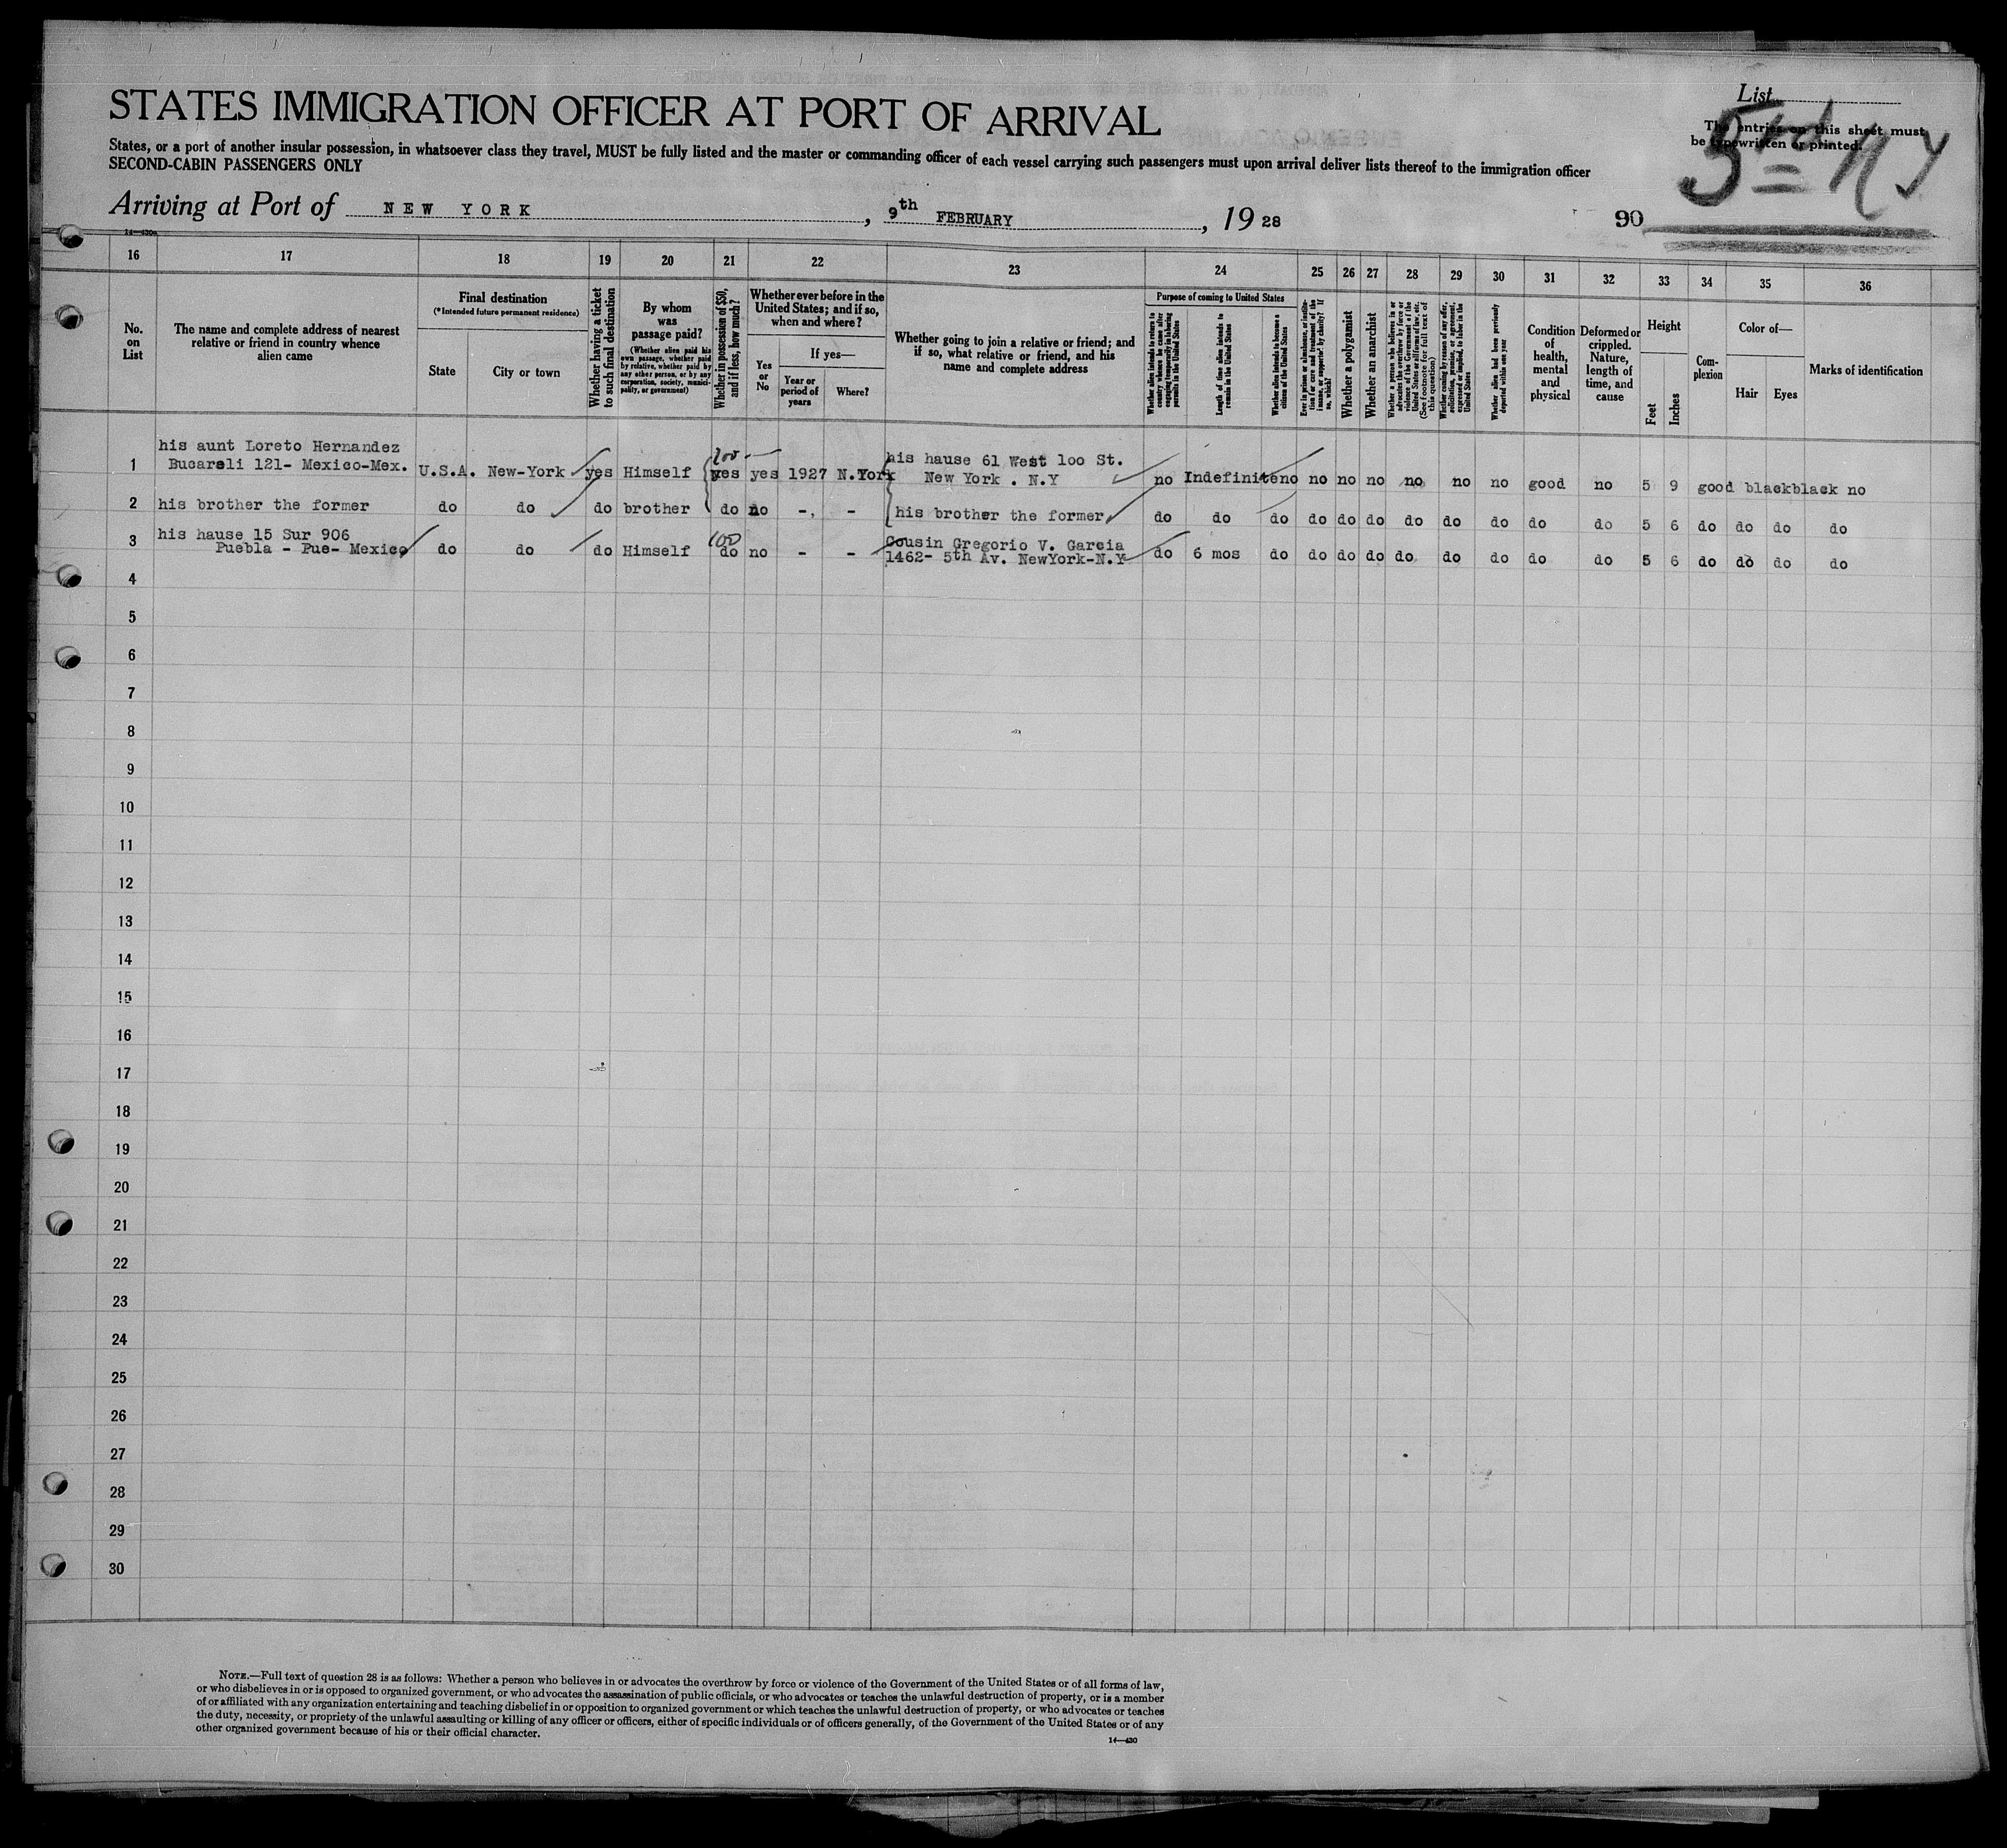 STATES IMMIGRATION OFFICER AT PORT OF ARRIVAL
List
The entries on this sheet must
be typewritten or printed.
States, or a port of another insular possession, in whatsoever class they travel, MUST be fully listed and the master or commanding officer of each vessel carrying such passengers must upon arrival deliver lists thereof to the immigration officer
SECOND-CABIN PASSENGERS ONLY
Arriving at Port of NEW YORK, 9th FEBRUARY, 19 28
90
14—430a
16 17 18 19 20 21 22 23 24 25 26 27 28 29 30 31 32 33 34 35 36
No. on List
The name and complete address of nearest relative or friend in country whence alien came
Final destination
(*Intended future permanent residence)
State
City or town
Whether having a ticket to such final destination
By whom was passage paid?
(Whether alien paid his own passage, whether paid by relative, whether paid by any other person, or by any corporation, society, municipality, or government)
Whether in possession of $50, and if less, how much?
Whether ever before in the United States; and if so, when and where?
Yes or No
If yes—
Year or period of years
Where?
Whether going to join a relative or friend; and if so, what relative or friend, and his name and complete address
Purpose of coming to United States
Whether alien intends to return to country whence he came after engaging temporarily in laboring pursuits in the United States
Length of time alien intends to remain in the United States
Whether alien intends to become a citizen of the United States
Ever in prison or almshouse, or institution for care and treatment of the insane, or supported by charity? If so, which?
Whether a polygamist
Whether an anarchist
Whether a person who believes in or advocates the overthrow by force or violence of the Government of the United States or all forms of law, etc. (See footnote for full text of this question)
Whether coming by reason of any offer, solicitation, promise, or agreement, expressed or implied, to labor in the United States
Whether alien had been previously deported within one year
Condition of health, mental and physical
Deformed or crippled. Nature, length of time, and cause
Height
Feet
Inches
Complexion
Color of—
Hair
Eyes
Marks of identification
1 his aunt Loreto Hernandez
Bucareli 121- Mexico-Mex. U.S.A. New-York yes Himself yes yes 1927 N.York his hause 61 West 100 St.
New York . N.Y no Indefinite no no no no no no no good no 5 9 good black black no
2 his brother the former do do do brother do no -, - his brother the former do do do do do do do do do do do 5 6 do do do do
3 his hause 15 Sur 906
Puebla - Pue- Mexico do do do Himself 100 do no - - Cousin Gregorio V. Garcia
1462- 5th Av. NewYork-N.Y do 6 mos do do do do do do do do do 5 6 do do do do
4
5
6
7
8
9
10
11
12
13
14
15
16
17
18
19
20
21
22
23
24
25
26
27
28
29
30
NOTE.—Full text of question 28 is as follows: Whether a person who believes in or advocates the overthrow by force or violence of the Government of the United States or of all forms of law,
or who disbelieves in or is opposed to organized government, or who advocates the assassination of public officials, or who advocates or teaches the unlawful destruction of property, or is a member
of or affiliated with any organization entertaining and teaching disbelief in or opposition to organized government or which teaches the unlawful destruction of property, or who advocates or teaches
the duty, necessity, or propriety of the unlawful assaulting or killing of any officer or officers, either of specific individuals or of officers generally, of the Government of the United States or of any
other organized government because of his or their official character.
14—430